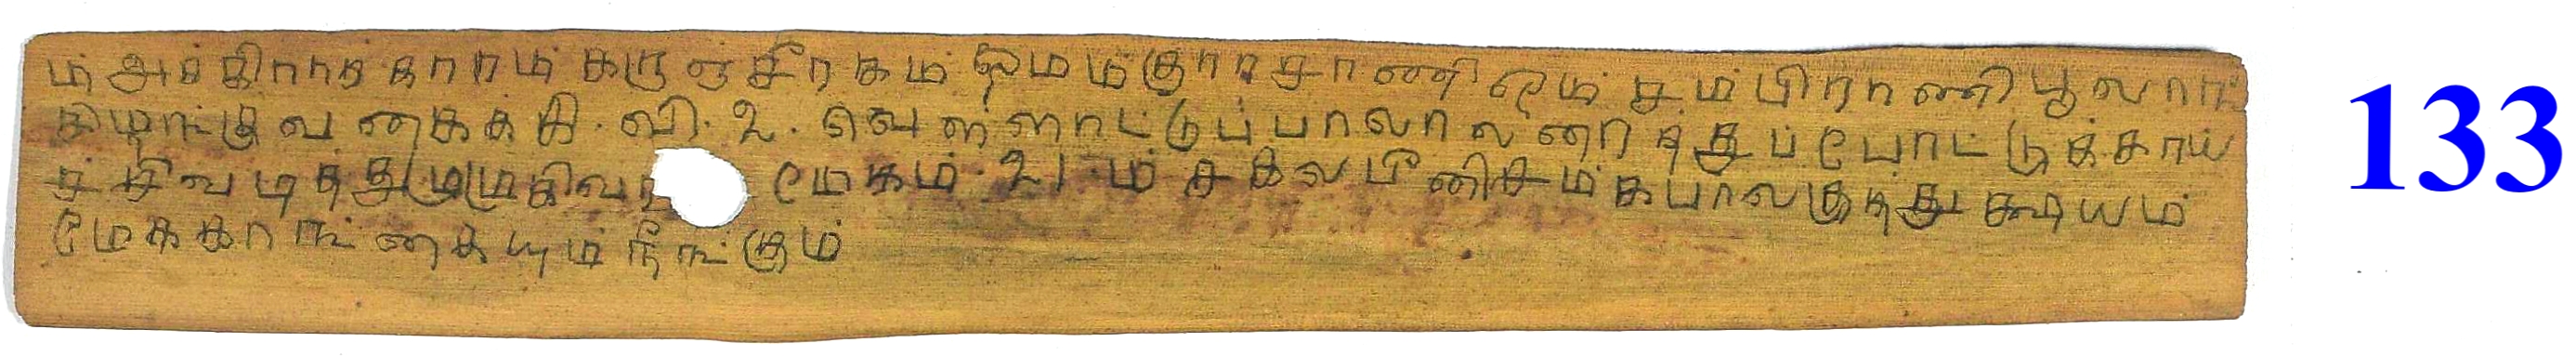 ம் அக்கிராகாரம் கருஞ்சீரகம் ஓமம் குராசாணி ஓமம் சாம்பிராணி பூலாங்
கிழங்கு வகைக்கு கி. வி. 2. வெள்ளாட்டுப்பாலால் அரைத்துப்போட்டுக்காய்
ச்சிவடித்து முழுகிவர மேகம். 21. ம் சகலபீனிசம் கபாலகுத்து க்ஷயம்
மேகக்காங்கையும் நீங்கும்
133